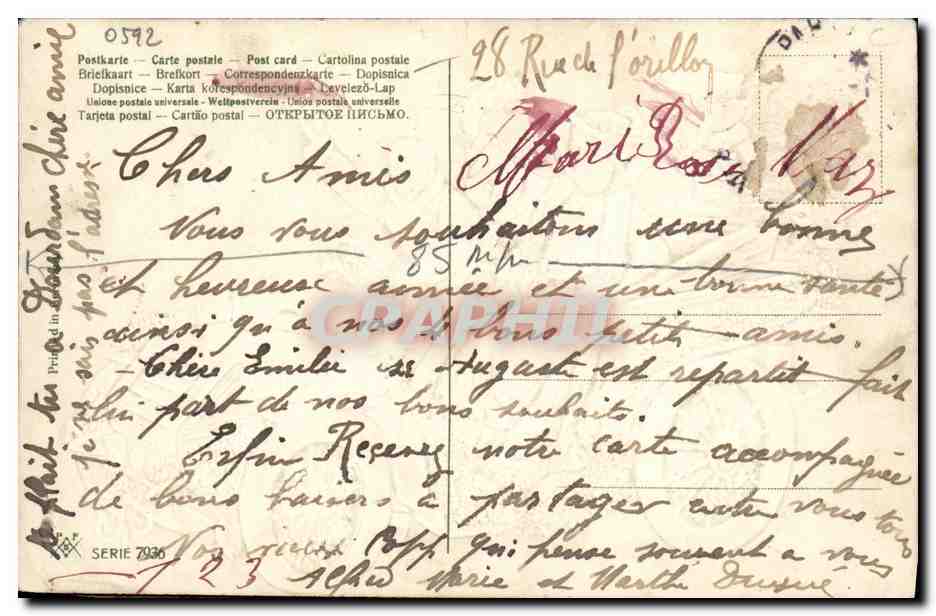 0592
Postkarte — Carte postale — Post card — Cartolina postale
Briefkaart — Brefkort — Correspondenzkarte — Dopisnica
Dopisnice — Karta korespondencyjna — Levelezö-Lap
Unione postale universale - Weltpostverein - Union postale universelle
Tarjeta postal — Cartão postal — ОТКРЫТОЕ ПИСЬМО.
28 Rue de l'orillon
Chers Amis
Vous vous souhaitons une bonne
85 m/m
et heureuse année et une bonne santé
ainsi qu'à nos bons petits amis.
Chère Emilie si Auguste est repartit fait
lui part de nos bons souhaits.
Enfin Recevez notre carte accompagnée
de bons baisers à partager entre vous tous
Nos vieux Copp qui pense souvent a vous
Marie et Marthe
SERIE 7936
123
Printed in
chère amie
je ne sais pas l'adresse.
CPAPHIL.com